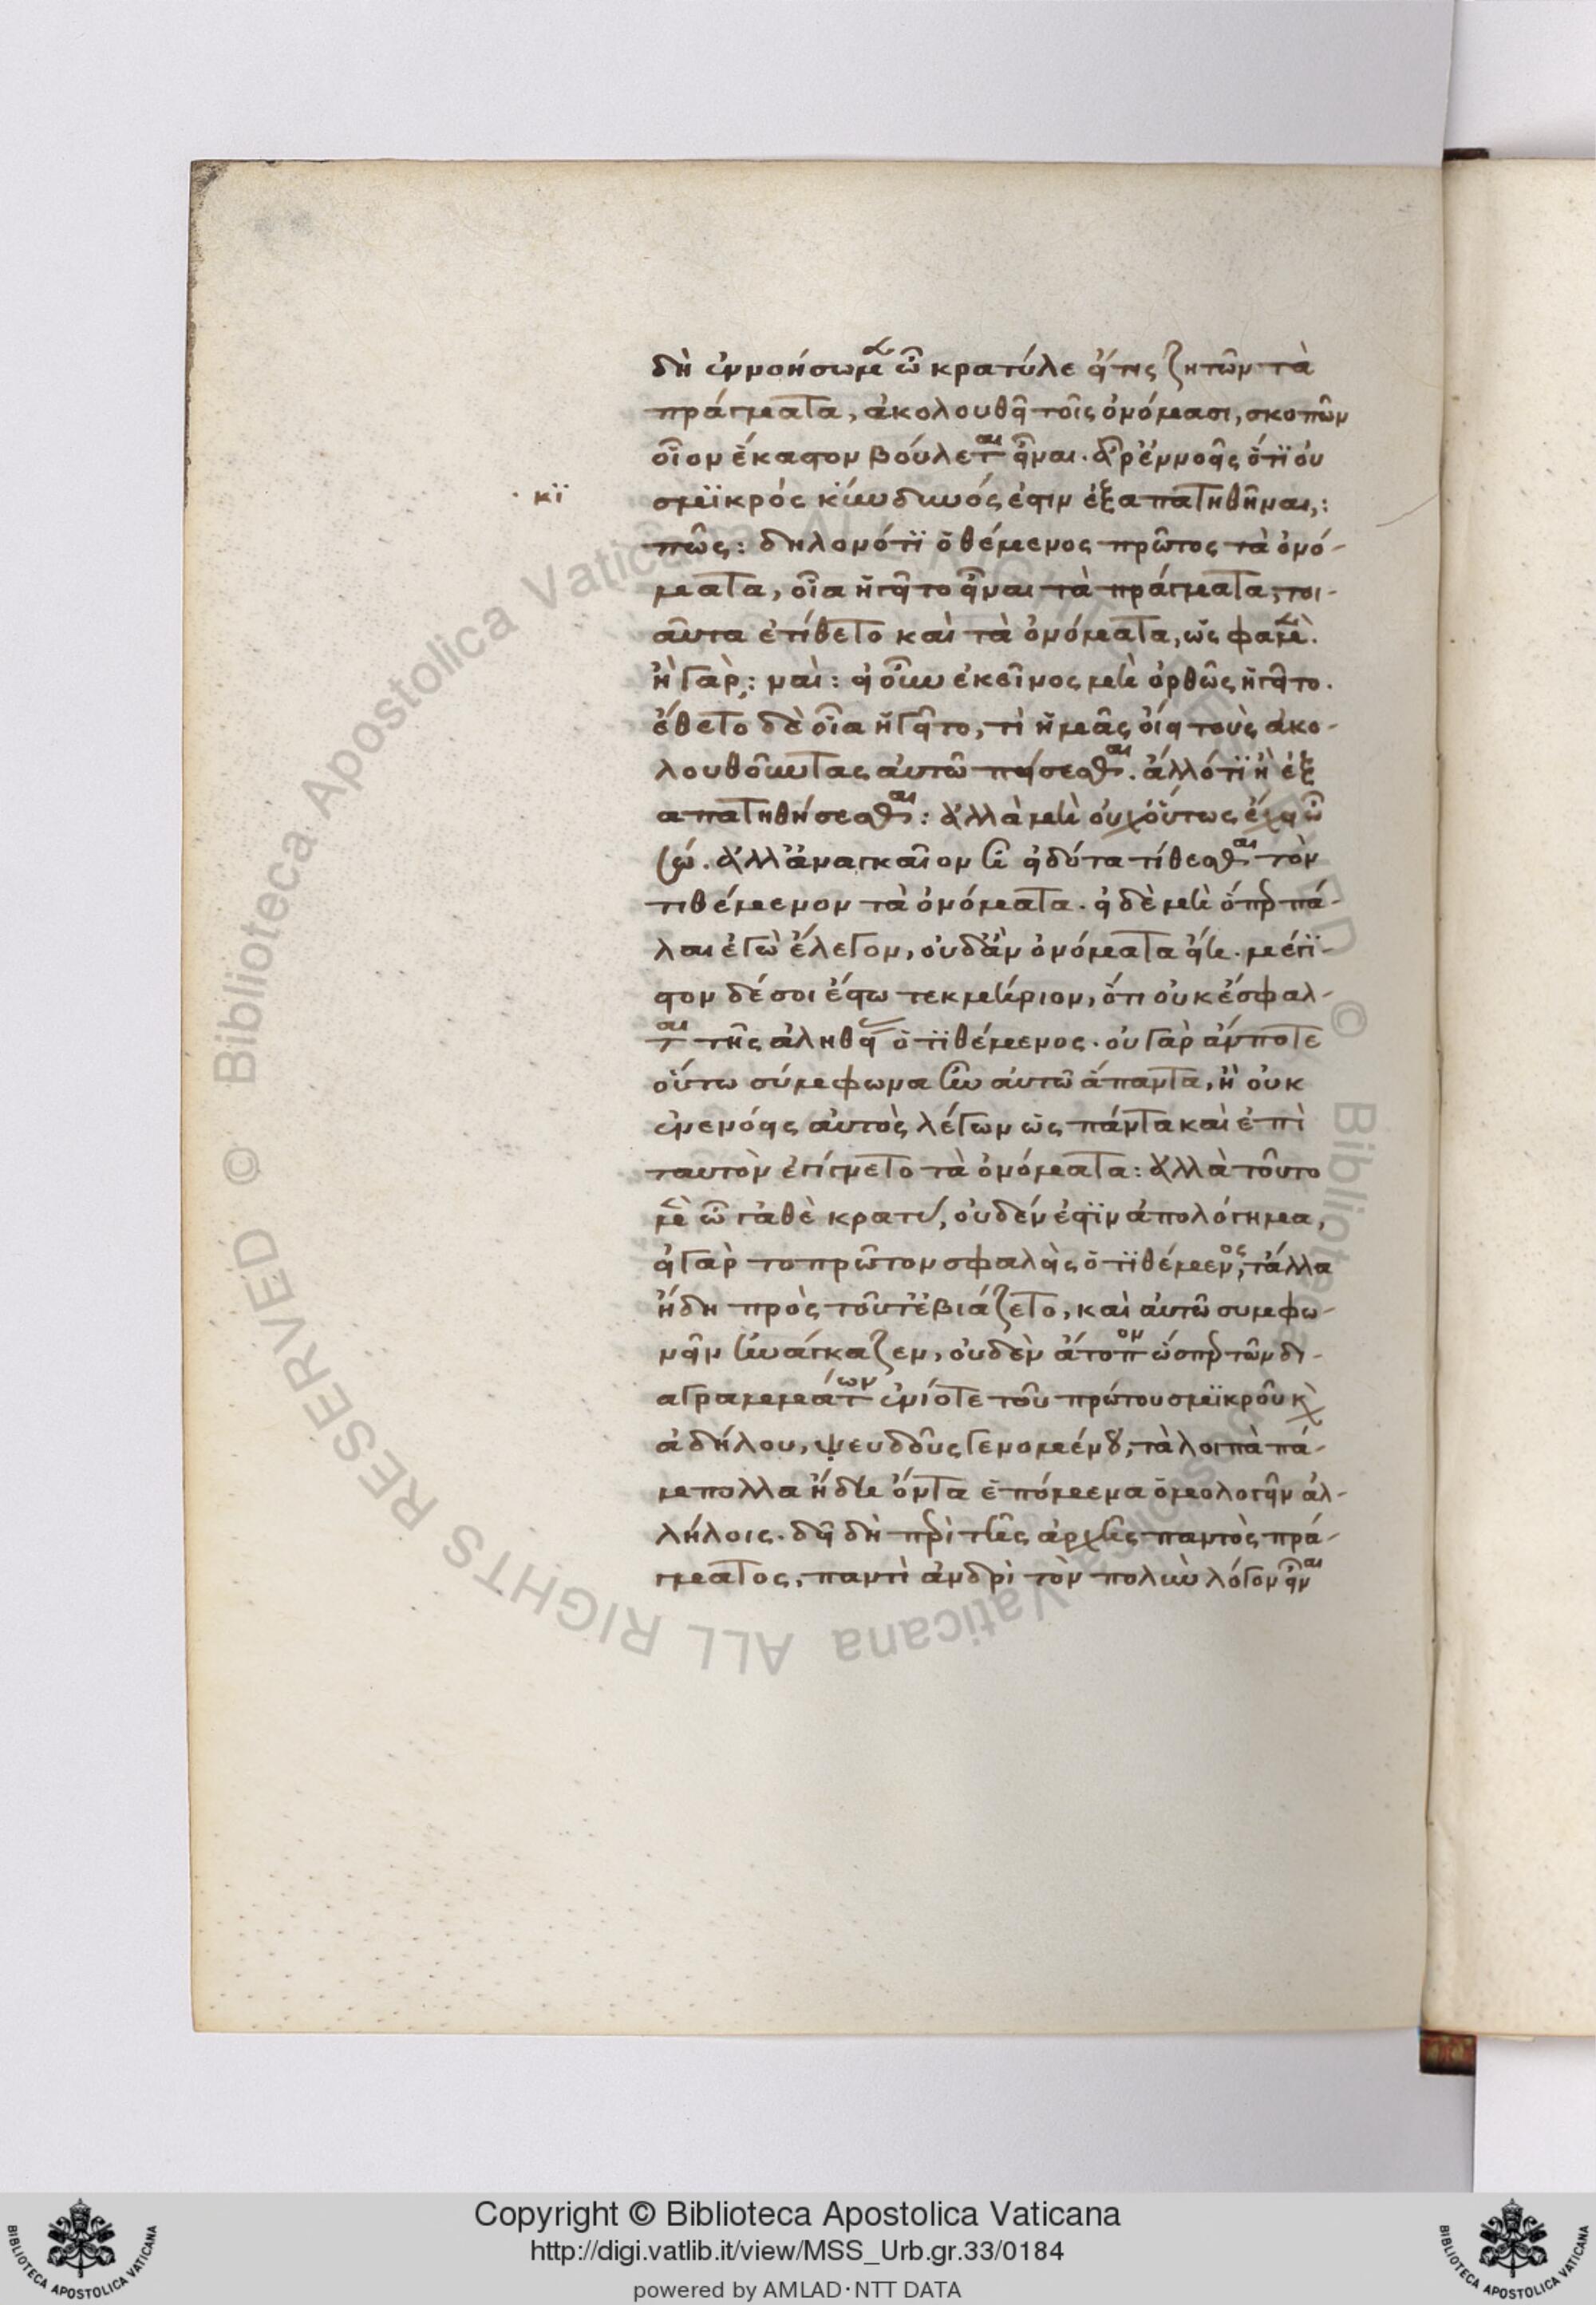 δὴ ἐννοήσωμεν ὦ κρατύλε εἴ τις ζητῶν τὰ
πράγματα, ἀκολουθεῖ τοῖς ὀνόμασι, σκοπῶν
οἷον ἕκαστον βούλεται εἶναι. ἆρ' ἐννοεῖς ὅτϊ οὐ
σμϊκρὸς κΐνδυνός ἐστιν ἐξαπατηθῆναι,:
· κϊ
πῶς: δηλονότϊ ὁ θέμενος πρῶτος τὰ ὀνό-
ματα, οἷα ἡγεῖτο εἶναι τὰ πράγματα, τοι-
αῦτα ἐτίθετο καὶ τὰ ὀνόματα, ὥς φαμὲν.
ἢ γάρ: ναὶ: εἰ οὖν ἐκεῖνος μὴ ὀρθῶς ἡγεῖτο.
ἔθετο δὲ οἷα ἡγεῖτο, τί ἡμᾶς οἴει τοὺς ἀκο-
λουθοῦντας αὐτῶ πείσεσθαι. ἄλλό τϊ ἢ ἐξ
απατηθήσεσθαι: ἀλλὰ μὴ οὐχ οὕτως ἔχει ὦ
σώ. ἀλλ' ἀναγκαῖον ἦ εἰδότα τίθεσθαι τὸν
τιθέμενον τὰ ὀνόματα. εἰ δὲ μὴ ὅπερ πά-
λαι ἐγὼ ἔλεγον, οὐδ' ἂν ὀνόματα εἴη. μέγϊ-
στον δέ σοι ἔστω τεκμήριον, ὅτι οὐκ ἔσφαλ-
ται τῆς ἀληθείας ὁ τϊθέμενος. οὐ γὰρ ἄν ποτε
οὕτω σύμφωνα ἦν αὐτῶ ἅπαντα, ἢ οὐκ
ἐνενόεις αὐτὸς λέγων ὡς πάντα καὶ ἐπὶ
ταυτὸν ἐγίγνετο τὰ ὀνόματα: ἀλλὰ τοῦτο
μὲν ὦ γαθὲ κρατύ, οὐδέν ἐστϊν ἀπολόγημα,
εἰ γὰρ το πρῶτον σφαλεὶς ὁ τϊθέμενος, τἄλλα
ἤδη πρὸς τοῦτ' ἐβιάζετο, καὶ αὐτῶ συμφω-
νεῖν ἠνάγκαζεν, οὐδὲν ἄτοπον ὥσπερ τῶν δι-
αγραμμάτων ἐνίοτε τοῦ πρώτου σμϊκροῦ κὶ
ἀδήλου, ψευδοῦς γενομένου, τὰ λοιπὰ πά-
μπολλα ἤδη ὄντα ἑπόμενα ὁμολογεῖν ἀλ-
λήλοις. δεῖ δὴ περὶ τῆς ἀρχῆς παντὸς πρά-
γματος, παντὶ ἀνδρὶ τὸν πολὺν λόγον εἶναι
Copyright © Biblioteca Apostolica Vaticana
http://digi.vatlib.it/view/MSS_Urb.gr.33/0184
powered by AMLAD·NTT DATA